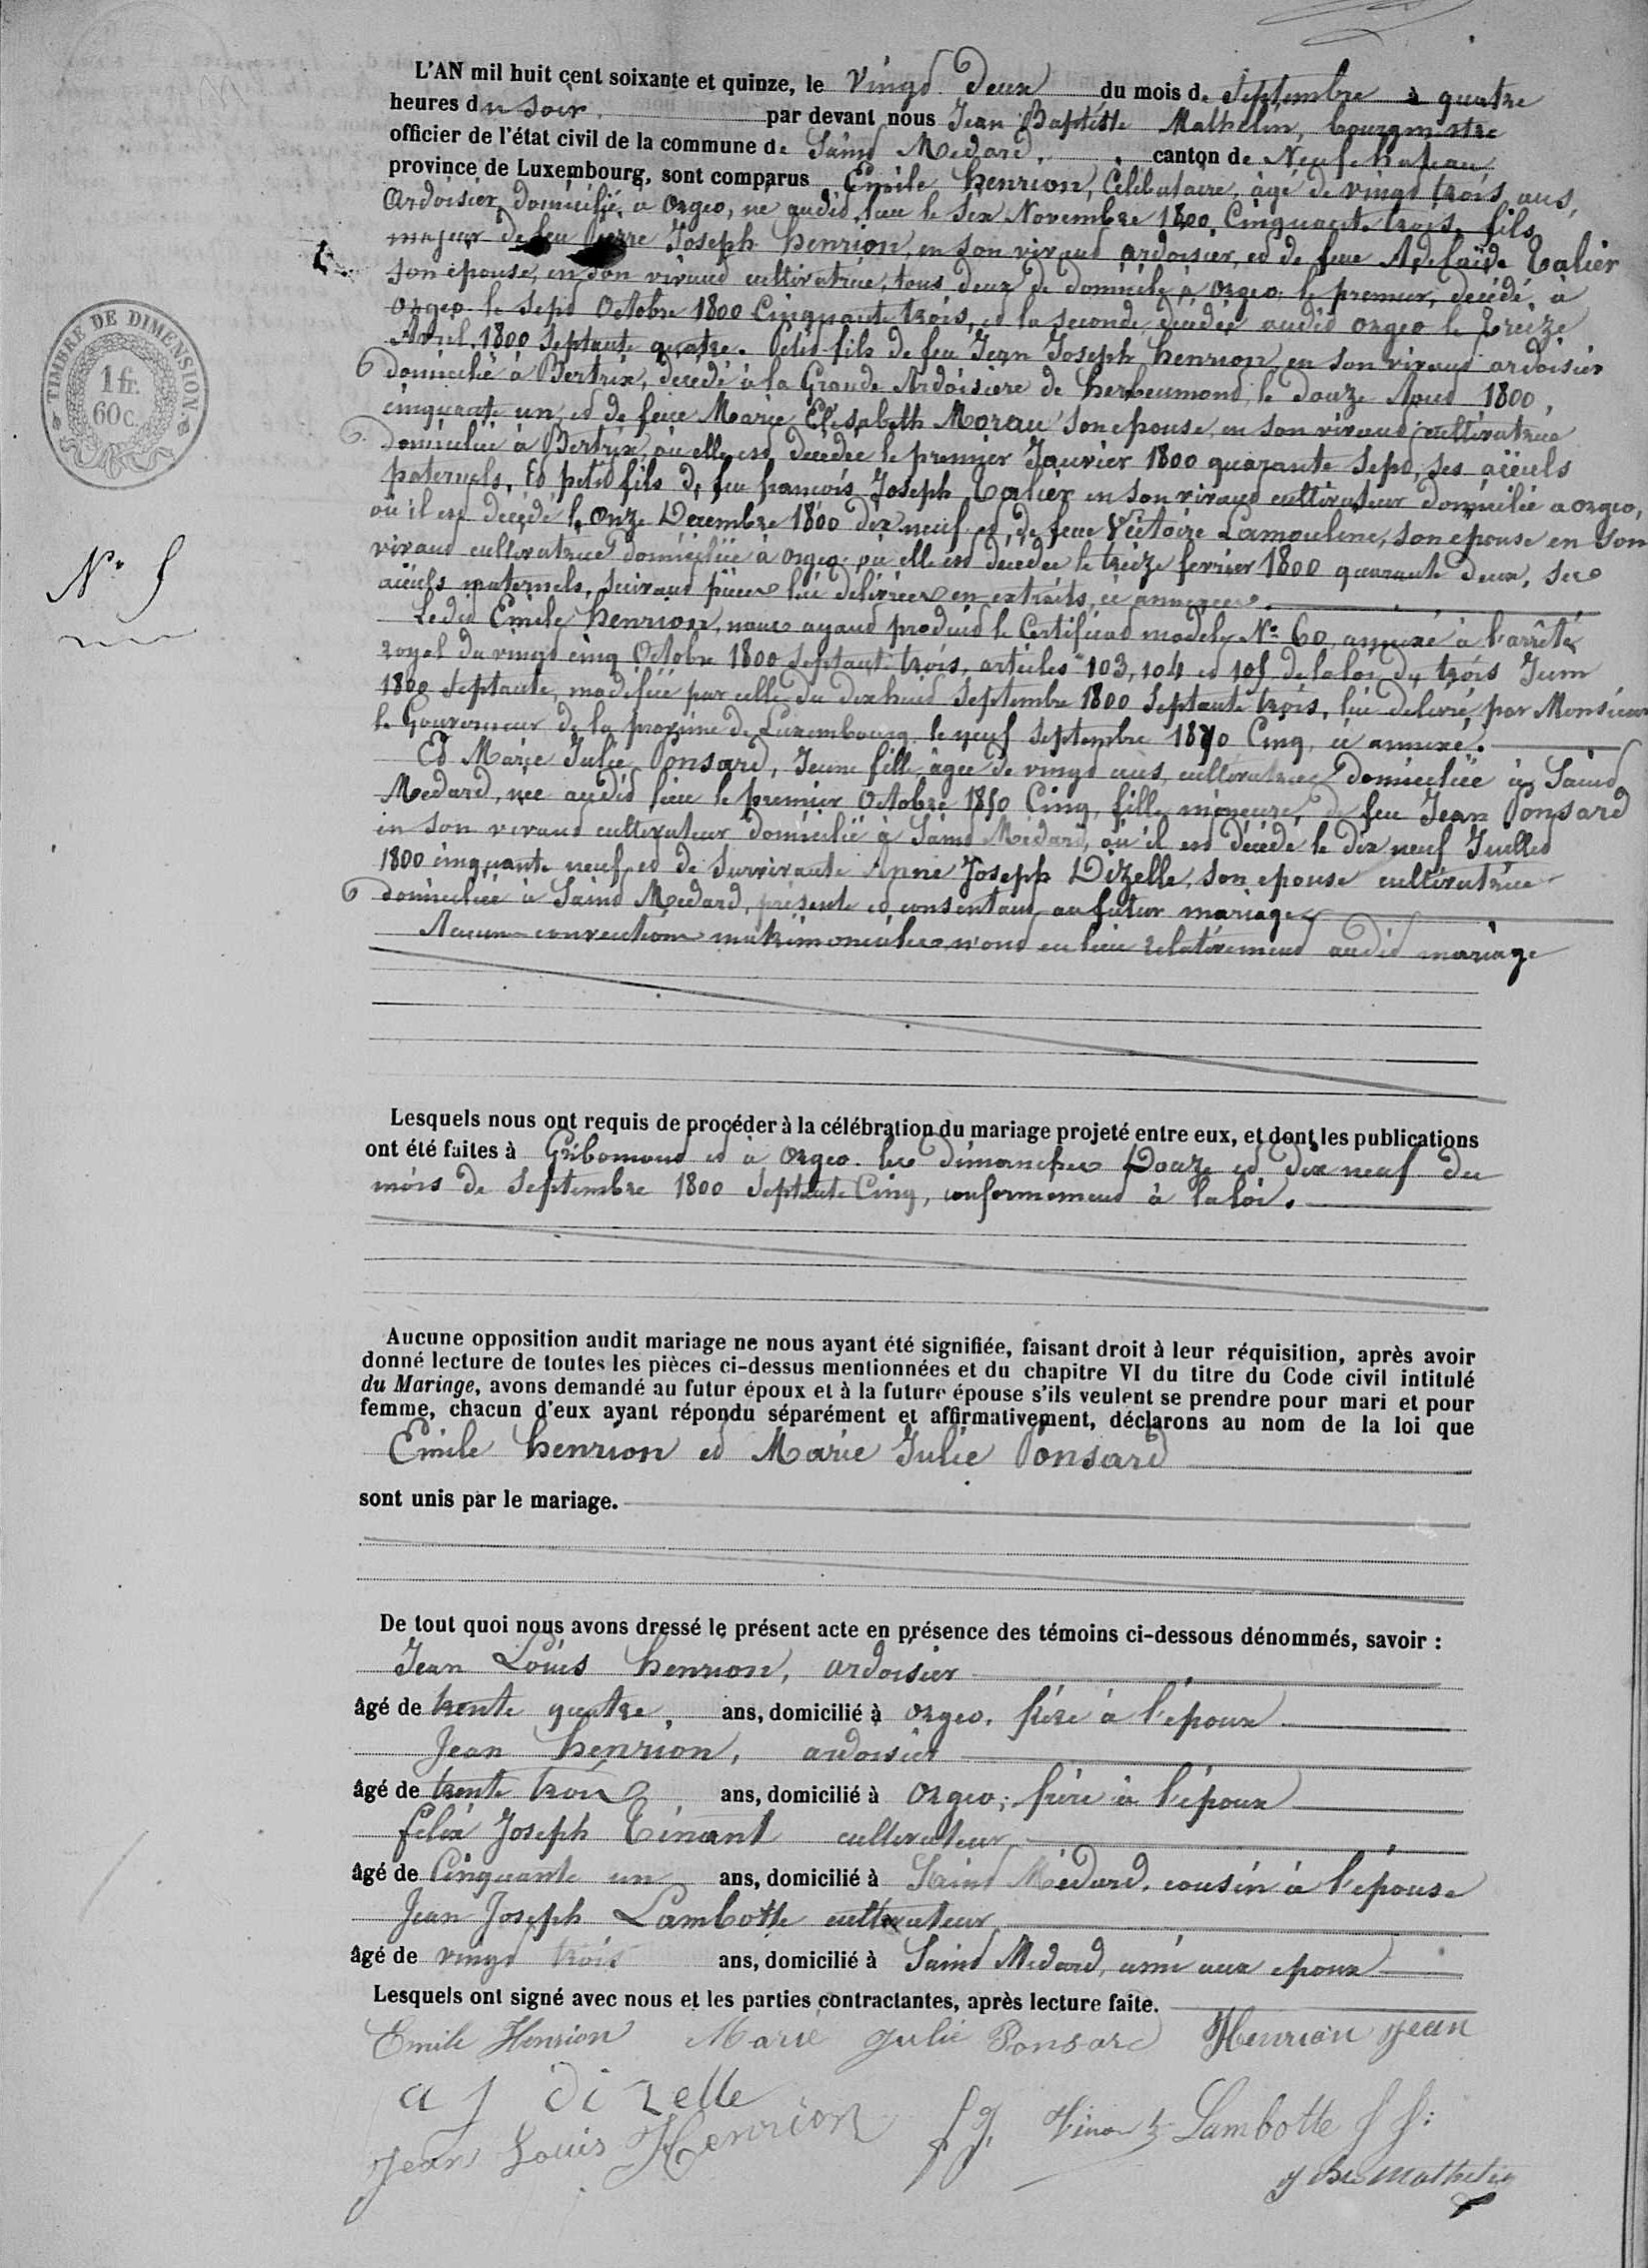 L'AN mil huit cent soixante et quinze, le Vingt Deux du mois de Septembre à quatre
heures du soir par devant nous Jean Baptiste Mathelin, bourgmestre
officier de l'état civil de la commune de Saint Medard, canton de Neufchateau
province de Luxembourg, sont comparus Emile henrion, Célibataire, âgé de vingt trois ans,
Ardoisier domicilié à Orgeo, né audit lieu le Six Novembre 1800 Cinquante trois, fils
majeur de feu Pierre Joseph henrion, en son vivant ardoisier, et de feue Adelaïde Talier
son épouse, en son vivant cultivatrice, tous deux de domicile à Orgeo, le premier, décédé à
Orgeo le Sept Octobre 1800 Cinquante trois, et la seconde, décédée audit Orgeo le Treize
Avril 1800 Septante quatre. Petit fils de feu Jean Joseph henrion en son vivant ardoisier
domicilié à Bertrix, décédé à la Grande Ardoisiere de herbeumont, le Douze Aout 1800
cinquante un, et de feue Marie Elisabeth Moreau son epouse, en son vivant cultivatrice
domiciliée à Bertrix, où elle est décédée le premier Janvier 1800 quarante Sept, ses aïeuls
paternels, Et petit fils de feu françois Joseph Talier en son vivant cultivateur domicilié à Orgeo,
où il est décédé le Onze Décembre 1800 dix neuf et de feue Victoire Lamouline, son epouse en son
vivant cultivatrice domiciliée à Orgeo où elle est décédée le treize fevrier 1800 quarante deux, ses
aïeuls maternels, Suivant pièces lui délivrées en extraits, ci annexées.
Ledit Emile henrion, nous ayant produit le Certificat modele No 60, annexé à l'arrêté
royal du vingt cinq Octobre 1800 Septante trois, articles 103, 104 et 105 de la loi du trois Juin
1800 Septante, modifiée par celle du dix huit Septembre 1800 Septante trois, lui délivré par Monsieur
le Gouverneur de la province de Luxembourg le neuf Septembre 1870 Cinq, ci annexé.
Et Marie Julie Ponsard, Jeune fille âgée de vingt ans, cultivatrice domiciliée à Saint
Medard, née audit lieu le premier Octobre 1850 Cinq, fille mineure, de feu Jean Ponsard
en son vivant cultivateur domicilié à Saint Médard, où il est décédé le dix neuf Juillet
1800 cinquante neuf, et de Survivante Anne Joseph Dizelle, son epouse cultivatrice
domiciliée à Saint Medard, présente et consentant au futur mariage
Aucunes conventions matrimoniales n'ont eu lieu relativement audit mariage
Lesquels nous ont requis de procéder à la célébration du mariage projeté entre eux, et dont les publications
ont été faites à Gribomont et à Orgeo les dimanches Douze et dix neuf du
mois de Septembre 1800 Septante Cinq, conformement à la loi.
Aucune opposition audit mariage ne nous ayant été signifiée, faisant droit à leur réquisition, après avoir
donné lecture de toutes les pièces ci-dessus mentionnées et du chapitre VI du titre du Code civil intitulé
du Mariage, avons demandé au futur époux et à la future épouse s'ils veulent se prendre pour mari et pour
femme, chacun d'eux ayant répondu séparément et affirmativement, déclarons au nom de la loi que
Emile henrion et Marie Julie Ponsard
sont unis par le mariage.
De tout quoi nous avons dressé le présent acte en présence des témoins ci-dessous dénommés, savoir :
Jean Louis henrion, ardoisier
âgé de trente quatre, ans, domicilié à Orgeo, frère à l'époux
Jean henrion, ardoisier
âgé de trente trois ans, domicilié à Orgeo, frère à l'époux
felix Joseph Tinant cultivateur
âgé de Cinquante un ans, domicilié à Saint Médard, cousin à l'épouse
Jean Joseph Lambotte cultivateur
âgé de vingt trois ans, domicilié à Saint Medard, ami aux epoux
Lesquels ont signé avec nous et les parties contractantes, après lecture faite.
Emile Henrion Marie Julie Ponsard Henrion Jean
a j dizelle
Jean Louis Henrion f j. Tinant Lambotte J J:
J Bte Mathelin
TIMBRE DE DIMENSION
1 fr.
60 c.
No 5